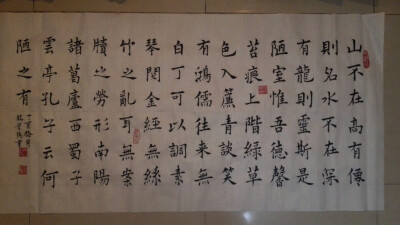 山不在高有僊
則名水不在深
有龍則靈斯是
陋室惟吾德馨
苔痕上階綠草
色入簾青談笑
有鴻儒往來無
白丁可以調素
琴閱金經無絲
竹之亂耳無案
牘之勞形南陽
諸葛廬西蜀子
雲亭孔子云何
陋之有